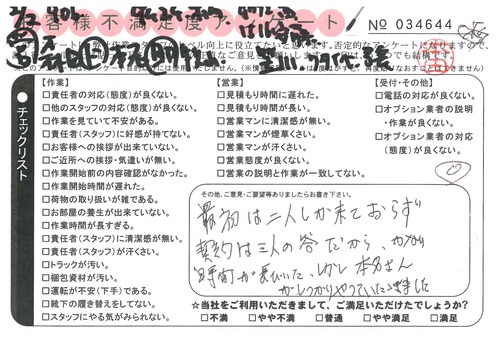 お客様不満足度アンケート
No 034644
チェックリスト
【作業】
□責任者の対応(態度)が良くない。
□他のスタッフの対応(態度)が良くない。
□作業を見ていて不安がある。
□責任者(スタッフ)に好感が持てない。
□お客様への挨拶が出来ていない。
□ご近所への挨拶・気遣いが無い。
□作業開始前の内容確認がなかった。
□作業開始時間が遅れた。
□荷物の取り扱いが雑である。
□お部屋の養生が出来ていない。
□作業時間が長すぎる。
□責任者(スタッフ)に清潔感が無い。
□責任者(スタッフ)が汗くさい。
□トラックが汚い。
□梱包資材が汚い。
□運転が不安(下手)である。
□靴下の履き替えをしてない。
□スタッフにやる気がみられない。
【営業】
□見積り時間に遅れた。
□見積り時間が長い。
□営業マンに清潔感が無い。
□営業マンが煙草くさい。
□営業マンが汗くさい。
□営業態度が良くない。
□営業の説明と作業が一致してない。
【受付・その他】
□電話の対応が良くない。
□オプション業者の説明・作業が良くない。
□オプション業者の対応(態度)が良くない。
その他、ご意見・ご要望等ありましたらお書き下さい。
最初は二人しか来ておらず
契約は三人の筈だから、かなり
時間が長びいた。しかし 本名さん
がしっかりやっていただきました
☆当社をご利用いただきまして、ご満足いただけたでしょうか?
□不満 □やや不満 □普通 □やや満足 □満足